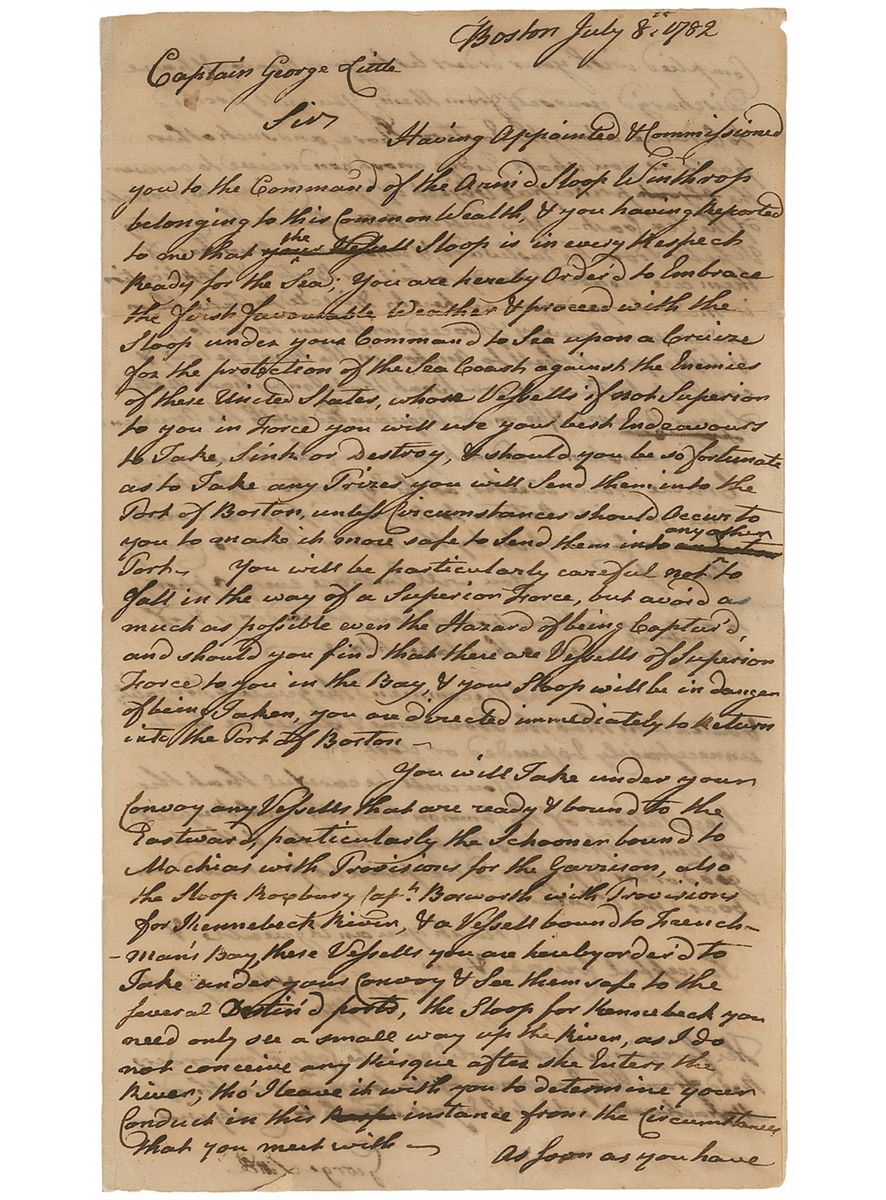 Boston July 8th. 1782
Captain George Little
Sir
Having Appointed & Commissioned
you to the Command of the Arm'd Sloop Winthrop
belonging to this Common Wealth, & you having Reported
to me that the your Vessell Sloop is in every Respect
Ready for the Sea; You are hereby Order'd to Embrace
the first favourable Weather & proceed with the
Sloop under your Command to Sea upon a Cruize
for the protection of the Sea Coast against the Enemies
of these United States, whose Vessells if not Superior
to you in Force you will use your best Endeavours
to Take Sink or Destroy, & should you be so fortunate
as to Take any Prizes you will Send them into the
Port of Boston, unless Circumstances should Occur to
you to make it more safe to Send them into any other
Port— You will be particularly careful not to
fall in the way of a Superior Force, but avoid as
much as possible even the Hazard of being Captur'd,
and should you find that there are Vessells of Superior
Force to you in the Bay, & your Sloop will be in danger
of being Taken, you are directed immediately to Return
into the Port of Boston—
You will Take under your
Convoy any Vessells that are ready & bound to the
Eastward, particularly the Schooner bound to
Machias with Provisions for the Garrison, also
the Sloop Roxbury Capt. Bosworth with Provisions
for Kennebeck River, & a Vessell bound to French-
-man's Bay, these Vessells you are hereby order'd to
Take under your Convoy & See them safe to the
several Destin'd ports, the Sloop for Kennebeck you
need only see a small way up the River, as I do
not conceive any Risque after she Enters the
River, tho' I leave it with you to determine your
Conduct in this instance from the Circumstances
that you meet with—
As soon as you have